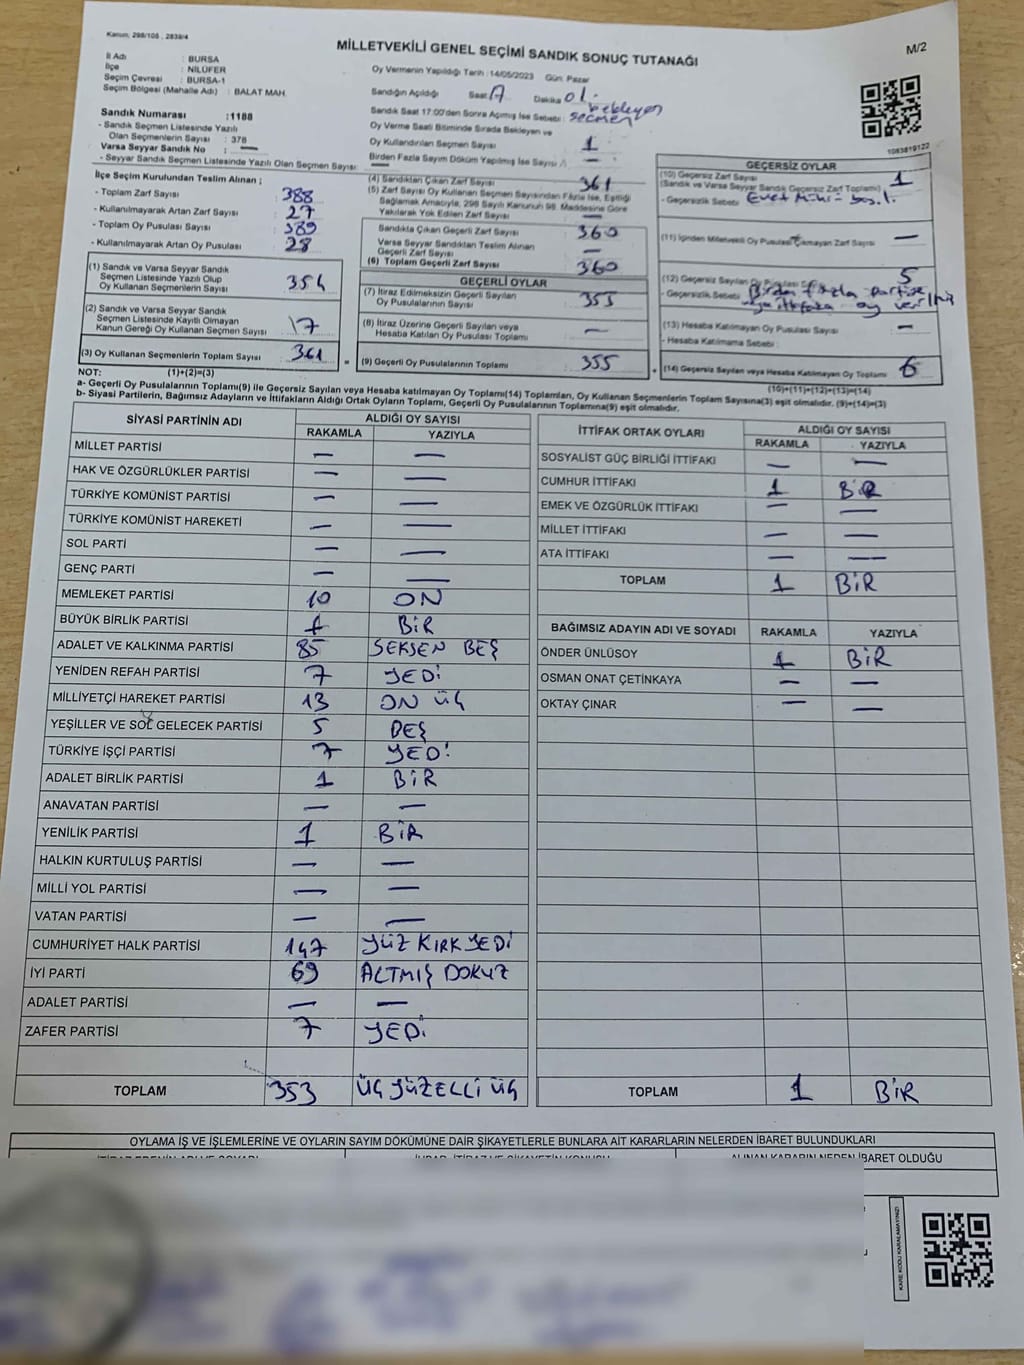 Kanun, 298/105 , 2839/4
MİLLETVEKİLİ GENEL SEÇİMİ SANDIK SONUÇ TUTANAĞI
M/2
İl Adı : BURSA
İlçe : NİLÜFER
Seçim Çevresi : BURSA-1
Seçim Bölgesi (Mahalle Adı) : BALAT MAH.
Oy Vermenin Yapıldığı Tarih : 14/05/2023 Gün: Pazar
Sandığın Açıldığı Saat Dakika 01.
Sandık Saat 17:00'den Sonra Açımış İse Sebebi : bekleyen seçmen
Oy Verme Saati Bitiminde Sırada Bekleyen ve
Oy Kullandırılan Seçmen Sayısı 1
Birden Fazla Sayım Döküm Yapılmış İse Sayısı —
1083819122
Sandık Numarası :1188
- Sandık Seçmen Listesinde Yazılı
Olan Seçmenlerin Sayısı : 378
Varsa Seyyar Sandık No : —
- Seyyar Sandık Seçmen Listesinde Yazılı Olan Seçmen Sayısı: —
İlçe Seçim Kurulundan Teslim Alınan ;
- Toplam Zarf Sayısı 388
- Kullanılmayarak Artan Zarf Sayısı 27
- Toplam Oy Pusulası Sayısı 389
- Kullanılmayarak Artan Oy Pusulası 28
(1) Sandık ve Varsa Seyyar Sandık
Seçmen Listesinde Yazılı Olup
Oy Kullanan Seçmenlerin Sayısı 354
(2) Sandık ve Varsa Seyyar Sandık
Seçmen Listesinde Kayıtlı Olmayan
Kanun Gereği Oy Kullanan Seçmen Sayısı 17
(3) Oy Kullanan Seçmenlerin Toplam Sayısı 361
(4) Sandıktan Çıkan Zarf Sayısı 361
(5) Zarf Sayısı Oy Kullanan Seçmen Sayısından Fazla İse, Eşitliği
Sağlamak Amacıyla, 298 Sayılı Kanunun 98. Maddesine Göre
Yakılarak Yok Edilen Zarf Sayısı —
Sandıkta Çıkan Geçerli Zarf Sayısı 360
Varsa Seyyar Sandıktan Teslim Alınan
Geçerli Zarf Sayısı —
(6) Toplam Geçerli Zarf Sayısı 360
GEÇERLİ OYLAR
(7) İtiraz Edilmeksizin Geçerli Sayılan
Oy Pusulasının Sayısı 355
(8) İtiraz Üzerine Geçerli Sayılan veya
Hesaba Katılan Oy Pusulası Toplamı —
= (9) Geçerli Oy Pusulalarının Toplamı 355
GEÇERSİZ OYLAR
(10) Geçersiz Zarf Sayısı
(Sandık ve Varsa Seyyar Sandık Geçersiz Zarf Toplamı) 1
- Geçersizlik Sebebi : Evet Mührü basılı.
(11) İçinden Milletvekili Oy Pusulası Çıkmayan Zarf Sayısı —
(12) Geçersiz Sayılan Oy Pusulası 5
- Geçersizlik Sebebi : Birden fazla partiye
veya ittifaka oy
(13) Hesaba Katılmayan Oy Pusulası Sayısı —
- Hesaba Katılmama Sebebi :
+ (14) Geçersiz Sayılan veya Hesaba Katılmayan Oy Toplamı 6
NOT: (1)+(2)=(3)
(10)+(11)+(12)+(13)=(14)
a- Geçerli Oy Pusulalarının Toplamı(9) ile Geçersiz Sayılan veya Hesaba katılmayan Oy Toplam(14) Toplamları, Oy Kullanan Seçmenlerin Toplam Sayısına(3) eşit olmalıdır. (9)+(14)=(3)
b- Siyasi Partilerin, Bağımsız Adayların ve İttifakların Aldığı Ortak Oyların Toplamı, Geçerli Oy Pusulalarının Toplamına(9) eşit olmalıdır.
SİYASİ PARTİNİN ADI ALDIĞI OY SAYISI
RAKAMLA YAZIYLA
MİLLET PARTİSİ — —
HAK VE ÖZGÜRLÜKLER PARTİSİ — —
TÜRKİYE KOMÜNİST PARTİSİ — —
TÜRKİYE KOMÜNİST HAREKETİ — —
SOL PARTİ — —
GENÇ PARTİ — —
MEMLEKET PARTİSİ 10 ON
BÜYÜK BİRLİK PARTİSİ 1 BİR
ADALET VE KALKINMA PARTİSİ 85 SEKSEN BEŞ
YENİDEN REFAH PARTİSİ 7 YEDİ
MİLLİYETÇİ HAREKET PARTİSİ 13 ON ÜÇ
YEŞİLLER VE SOL GELECEK PARTİSİ 5 BEŞ
TÜRKİYE İŞÇİ PARTİSİ 7 YEDİ
ADALET BİRLİK PARTİSİ 1 BİR
ANAVATAN PARTİSİ — —
YENİLİK PARTİSİ 1 BİR
HALKIN KURTULUŞ PARTİSİ — —
MİLLİ YOL PARTİSİ — —
VATAN PARTİSİ — —
CUMHURİYET HALK PARTİSİ 147 YÜZ KIRK YEDİ
İYİ PARTİ 69 ALTMIŞ DOKUZ
ADALET PARTİSİ — —
ZAFER PARTİSİ 7 YEDİ
TOPLAM 353 ÜÇ YÜZELLİ ÜÇ
İTTİFAK ORTAK OYLARI ALDIĞI OY SAYISI
RAKAMLA YAZIYLA
SOSYALİST GÜÇ BİRLİĞİ İTTİFAKI — —
CUMHUR İTTİFAKI 1 BİR
EMEK VE ÖZGÜRLÜK İTTİFAKI — —
MİLLET İTTİFAKI — —
ATA İTTİFAKI — —
TOPLAM 1 BİR
BAĞIMSIZ ADAYIN ADI VE SOYADI RAKAMLA YAZIYLA
ÖNDER ÜNLÜSOY 1 BİR
OSMAN ONAT ÇETİNKAYA — —
OKTAY ÇINAR — —
TOPLAM 1 BİR
OYLAMA İŞ VE İŞLEMLERİNE VE OYLARIN SAYIM DÖKÜMÜNE DAİR ŞİKAYETLERLE BUNLARA AİT KARARLARIN NELERDEN İBARET BULUNDUKLARI
ALINAN KARARIN NEDEN İBARET OLDUĞU
KARE KODU KARALAMAYINIZ!